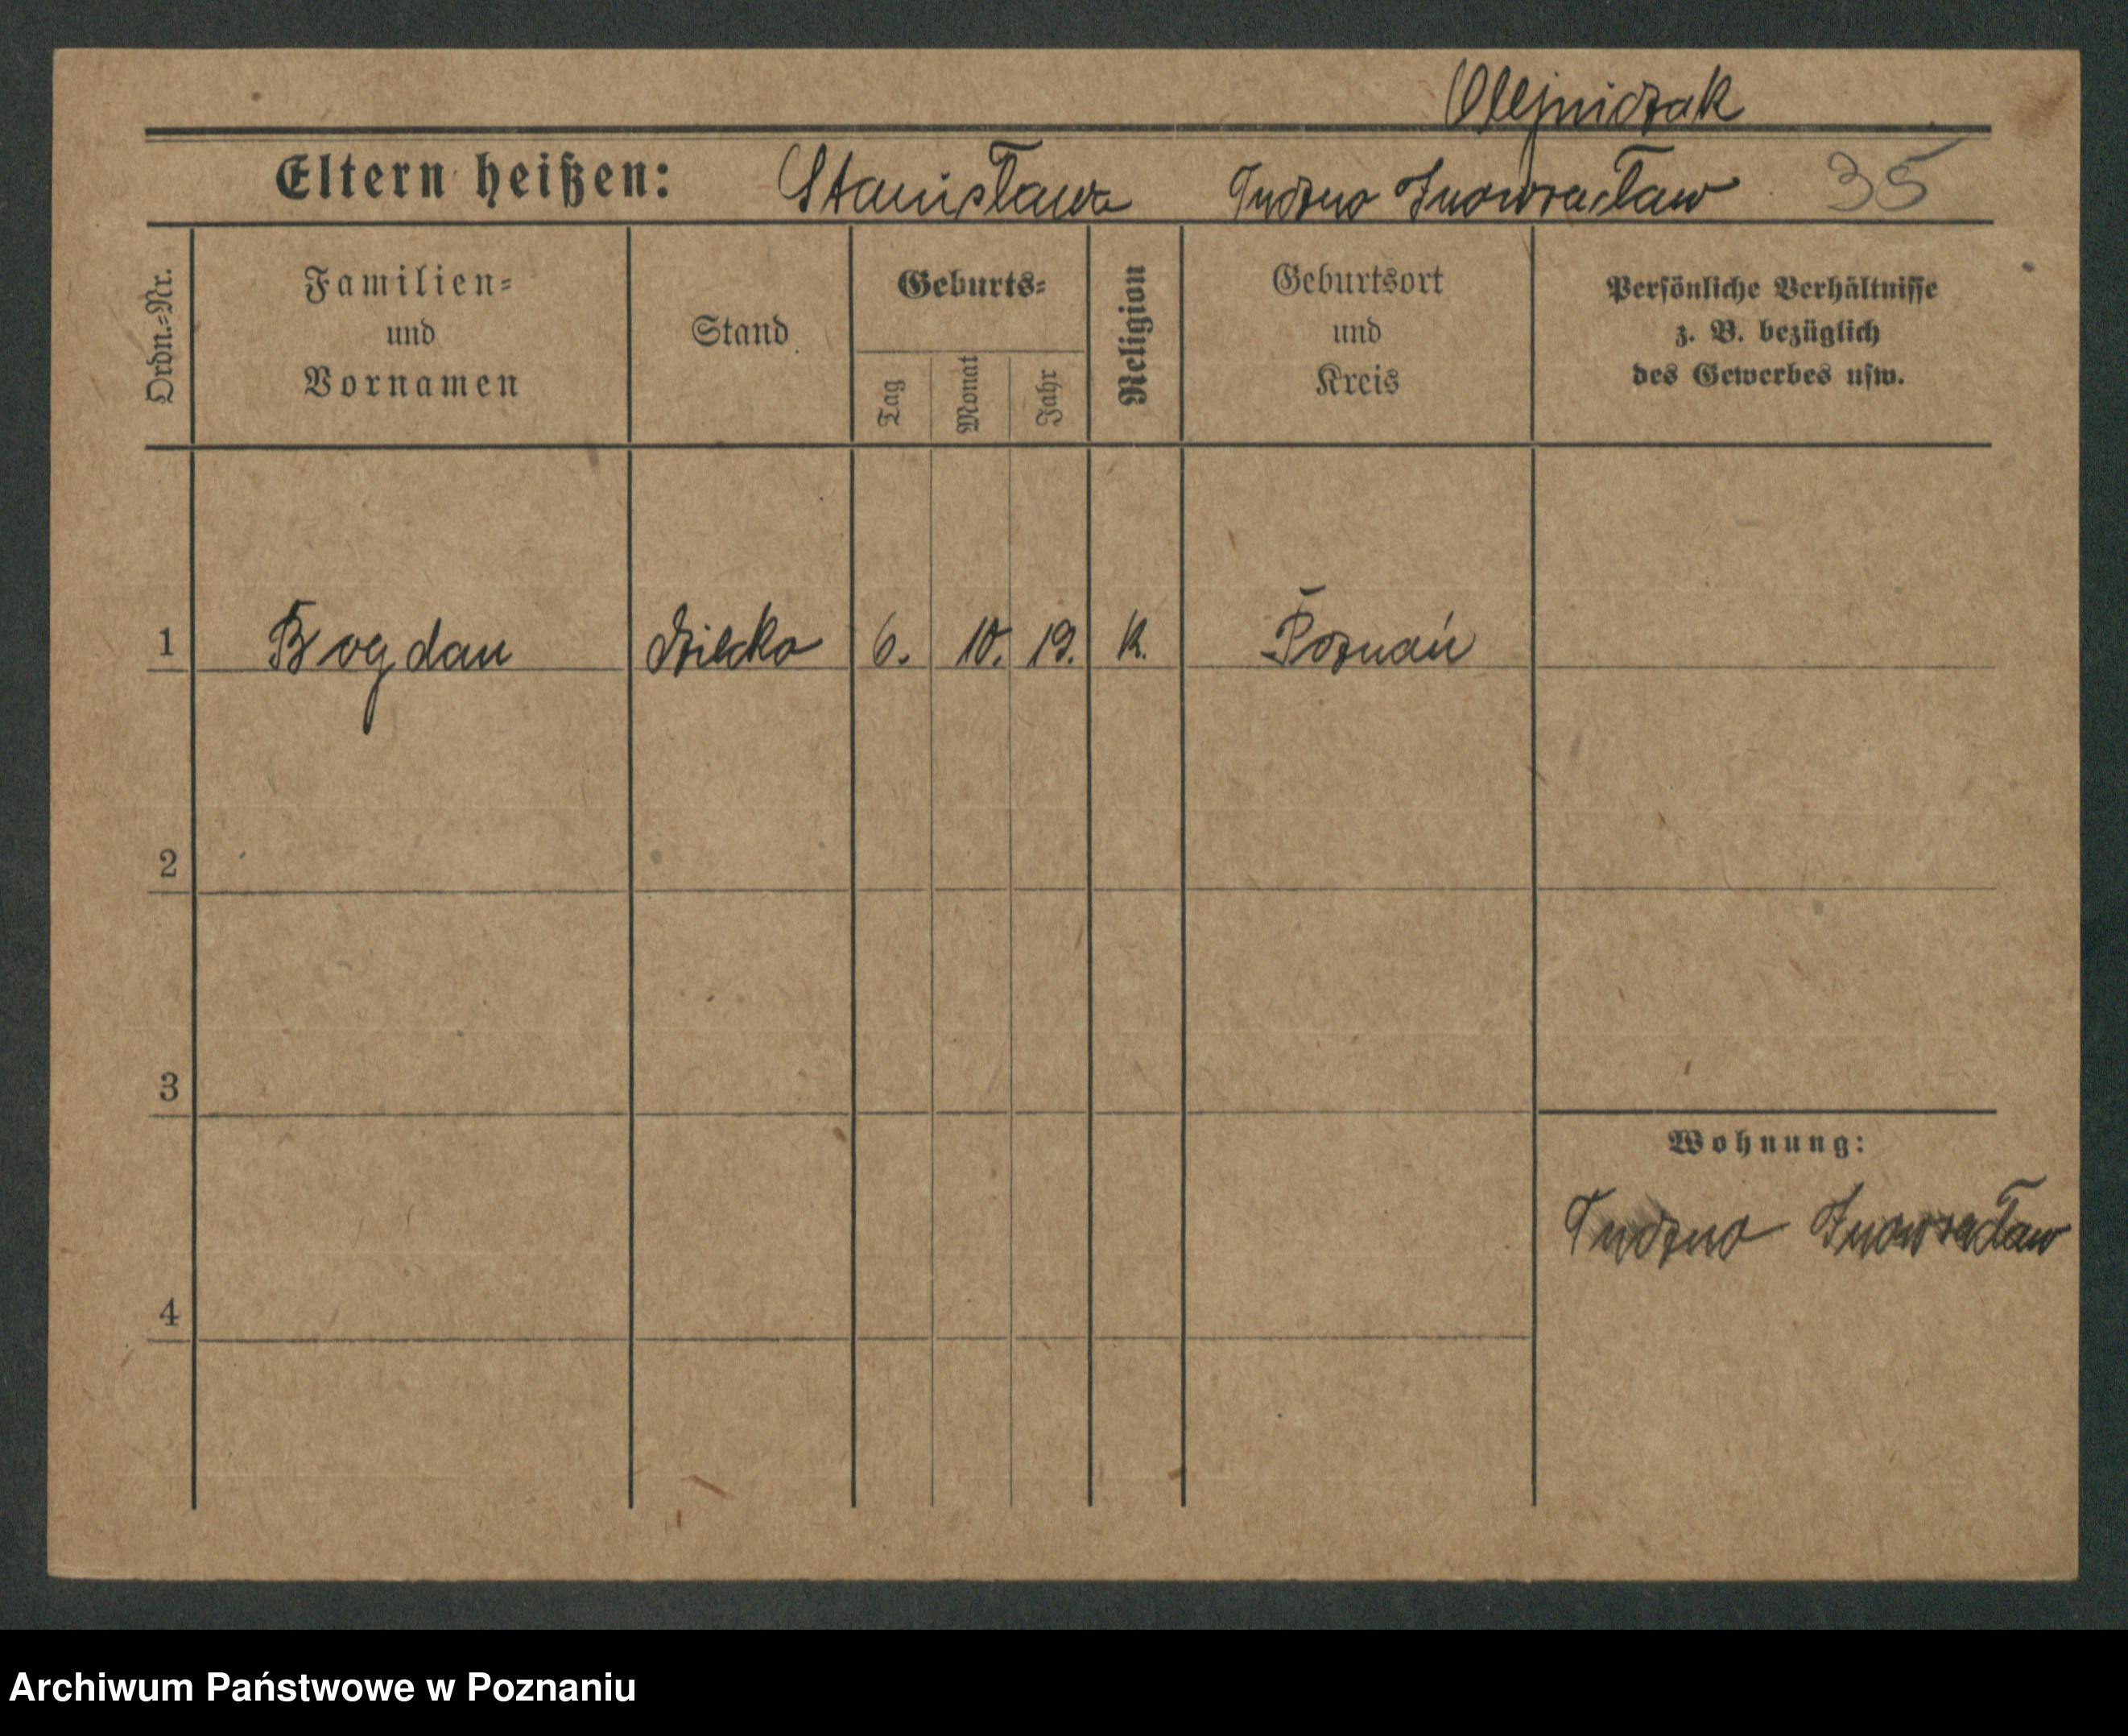 Olejniczak
Eltern heißen: Stanisława Tuczno Inowracław 35
Ordn.=Nr.
Familien=
und
Vornamen
Stand
Geburts=
Tag
Monat
Jahr
Religion
Geburtsort
und
Kreis
Persönliche Verhältnisse
z. B. bezüglich
des Gewerbes usw.
1 Bogdan dziecko 6. 10. 19. K. Poznań
2
3
Wohnung:
Tuczno Inowracław
4
Archiwum Państwowe w Poznaniu